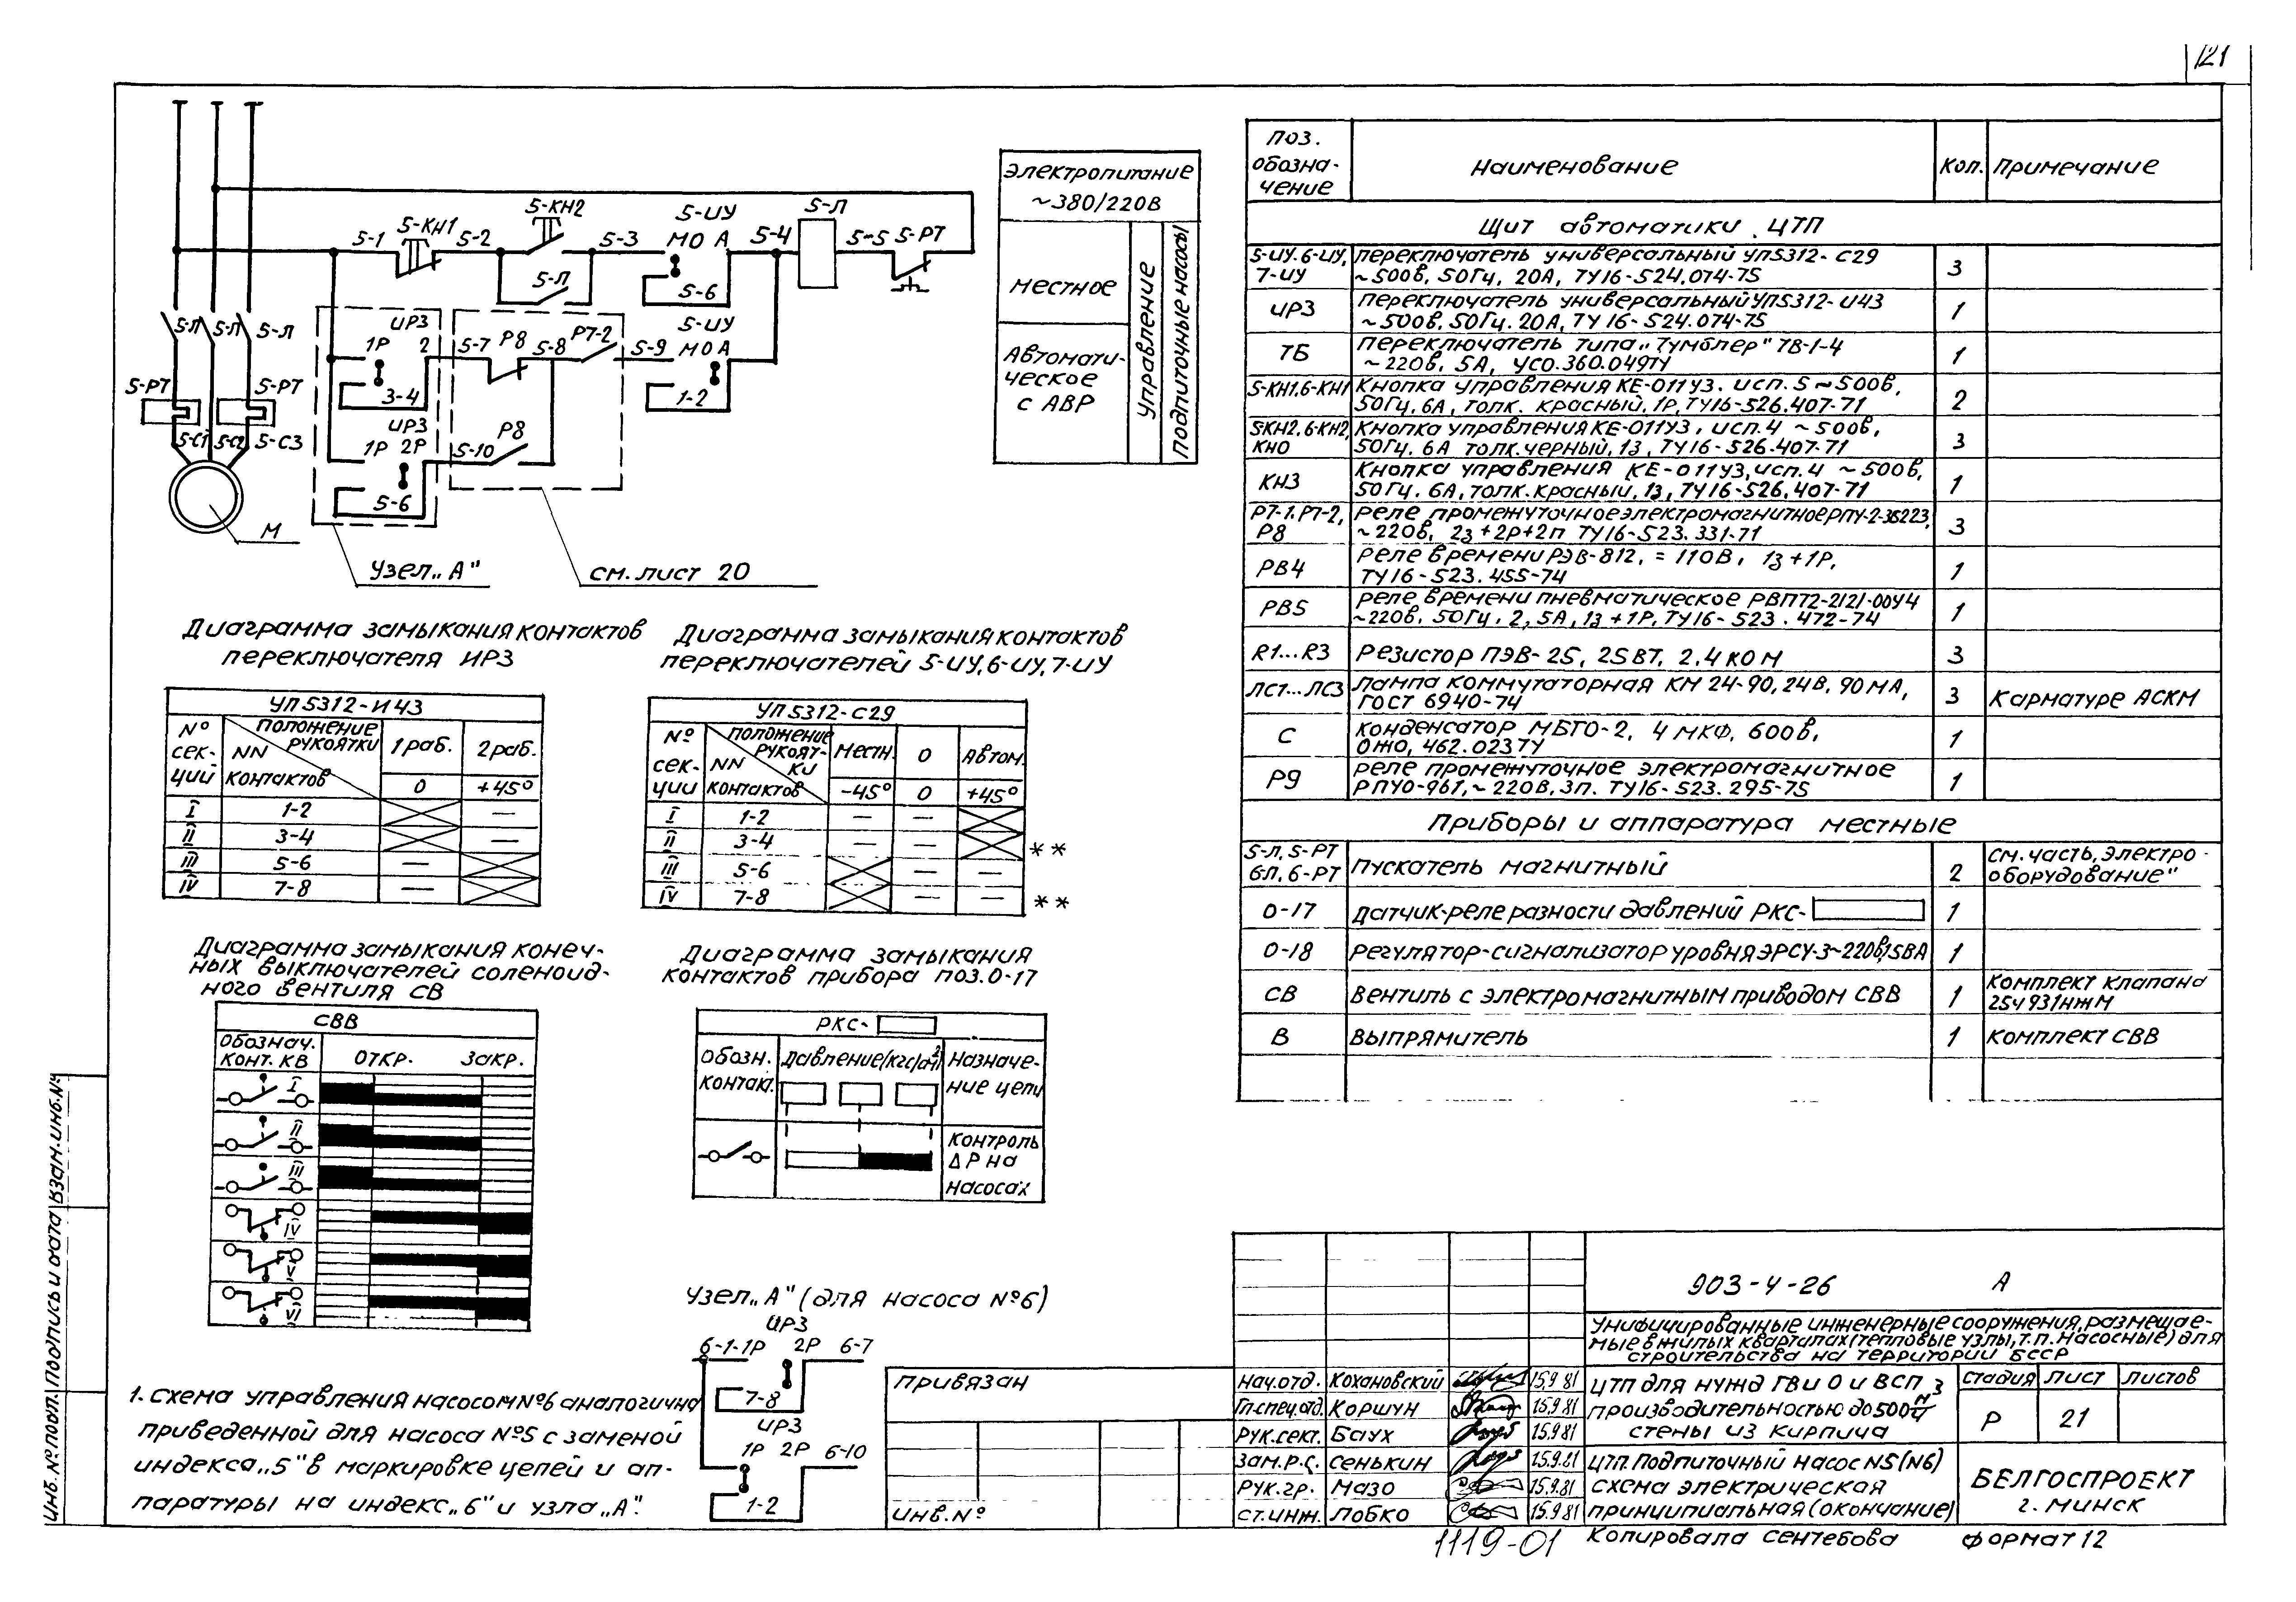 121
5-1
5-КН1
5-2
5-КН2
5-Л
5-3
5-ИУ
М О А
5-6
5-4
5-Л
5-5
5-РТ
5-Л
5-Л
5-Л
ИР3
1Р 2
3-4
5-7
Р8
5-8
Р7-2
5-9
5-ИУ
М О А
1-2
5-РТ
5-РТ
5-С1
5-С2
5-С3
ИР3
1Р 2Р
5-6
5-10
Р8
М
Узел „А"
см. лист 20
Электропитание
~380/220В
местное
Автомати-
ческое
с АВР
Управление
Подпиточные насосы
Диаграмма замыкания контактов
переключателя ИР3
УП5312-И43
№
сек-
ции
положение
рукоятки
NN
контактов
1 раб.
2 раб.
0
+45°
I 1-2 —
II 3-4 —
III 5-6 —
IV 7-8 —
Диаграмма замыкания контактов
переключателей 5-ИУ, 6-ИУ, 7-ИУ
УП5312-С29
№
сек-
ции
положение
рукоят-
ки
NN
контактов
Местн.
0
Автом.
-45°
0
+45°
I 1-2 — —
II 3-4 — — **
III 5-6 — —
IV 7-8 — — **
Диаграмма замыкания конеч-
ных выключателей соленоид-
ного вентиля СВ
СВВ
Обознач.
конт. КВ
откр.
закр.
I
II
III
IV
V
VI
Диаграмма замыкания
контактов прибора поз. 0-17
РКС-
Обозн.
контакт.
Давление (кгс/см²)
Назначе-
ние цепи
контроль
ΔР на
насосах
Узел „А" (для насоса №6)
ИР3
6-1-1Р 2Р 6-7
7-8
ИР3
1Р 2Р 6-10
1-2
1. Схема управления насосом №6 аналогична
приведенной для насоса №5 с заменой
индекса „5" в маркировке цепей и ап-
паратуры на индекс „6" и узла „А".
поз.
обозна-
чение
Наименование
Кол.
Примечание
Щит автоматики ЦТП
5-ИУ, 6-ИУ, 7-ИУ
переключатель универсальный УП5312-С29
~500В, 50Гц, 20А, ТУ16-524.074-75
3
ИР3
переключатель универсальный УП5312-И43
~500В, 50Гц, 20А, ТУ16-524.074-75
1
ТБ
переключатель типа „Тумблер" ТВ-1-4
~220В, 5А, УСО.360.049ТУ
1
5-КН1, 6-КН1
Кнопка управления КЕ-011У3, исп. 5 ~500В,
50Гц, 6А, толк. красный, 1Р, ТУ16-526.407-71
2
5-КН2, 6-КН2, КНО
Кнопка управления КЕ-011У3, исп. 4 ~500В,
50Гц, 6А толк. черный, 1з, ТУ16-526.407-71
3
КН3
Кнопка управления КЕ-011У3, исп. 4 ~500В,
50Гц, 6А, толк. красный, 1з, ТУ16-526.407-71
1
Р7-1, Р7-2, Р8
реле промежуточное электромагнитное РПУ-2-36223,
~220В, 2з+2р+2п ТУ16-523.331-71
3
РВ4
реле времени РЭВ-812, = 110В, 1з+1р,
ТУ16-523.455-74
1
РВ5
реле времени пневматическое РВП72-2121-00У4
~220В, 50Гц, 2,5А, 1з+1р, ТУ16-523.472-74
1
R1...R3
Резистор ПЭВ-25, 25ВТ, 2,4 КОМ
3
ЛС1...ЛС3
лампа коммутаторная КМ 24-90, 24В, 90МА,
ГОСТ 6940-74
3
К арматуре АСКМ
С
Конденсатор МБГО-2, 4 МКФ, 600В,
ОЖО.462.023ТУ
1
Р9
реле промежуточное электромагнитное
РПУ0-961, ~220В, 3п. ТУ16-523.295-75
1
Приборы и аппаратура местные
5-Л, 5-РТ
6Л, 6-РТ
пускатель магнитный
2
см. часть „электро-
оборудование"
0-17
датчик-реле разности давлений РКС-
1
0-18
регулятор-сигнализатор уровня ЭРСУ-3 ~220В, 15ВА
1
СВ
Вентиль с электромагнитным приводом СВВ
1
Комплект клапана
25ч931нжМ
В
Выпрямитель
1
Комплект СВВ
903-4-26 А
Унифицированные инженерные сооружения, размещае-
мые в жилых кварталах (тепловые узлы, т.п. насосные) для
строительства на территории БССР
Нач. отд. Кохановский 15.9.81
Гл. спец. отд. Коршун 15.9.81
Рук. сект. Баух 15.9.81
Зам. р.с. Сенькин 15.9.81
Рук. гр. Мазо 15.9.81
Ст. инж. Лобко 15.9.81
ЦТП для нужд ГВ и О и ВСП
производительностью до 500 м³/ч
стены из кирпича
стадия лист листов
Р 21
ЦТП. Подпиточный насос N5 (N6)
схема электрическая
принципиальная (окончание)
БЕЛГОСПРОЕКТ
г. Минск
Привязан
Инв. №
Инв. № подл. Подпись и дата Взам. инв. №
1119-01
Копировала Сентебова
Формат 12